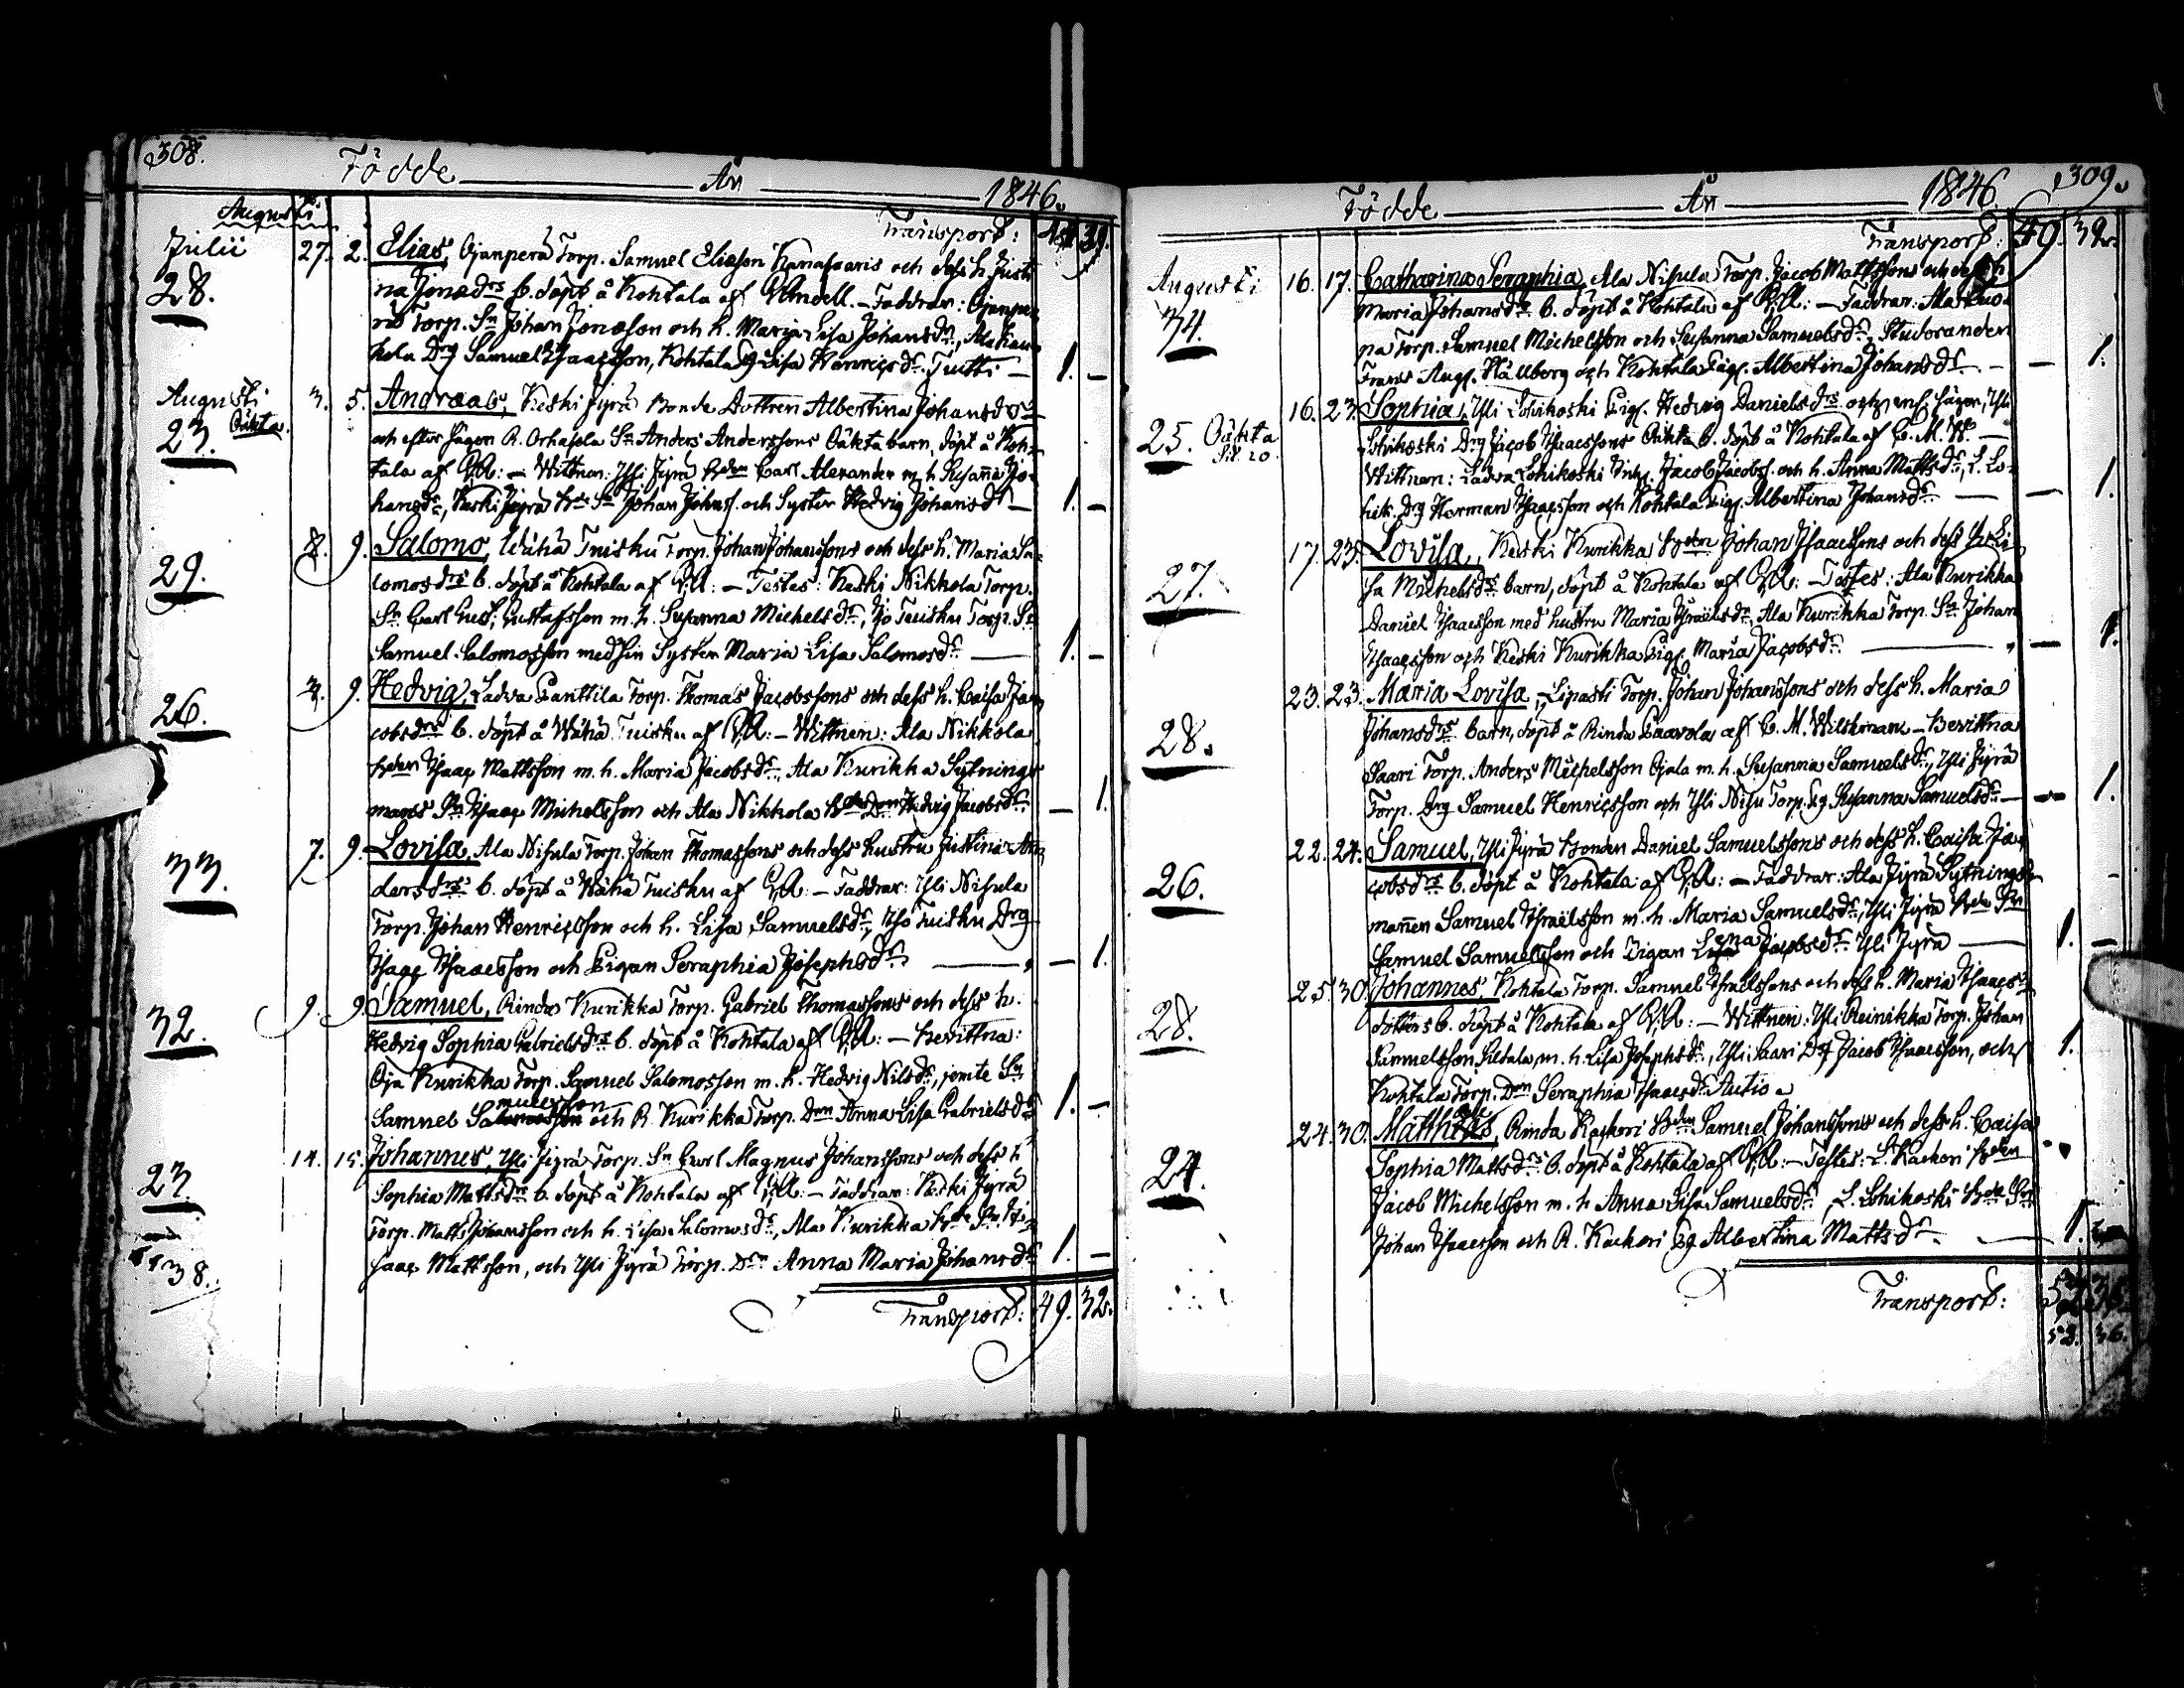 308.
Födde År 1846.
Augusti
Transport: 44. 31.
Julii 27. 2. Elias, Ojanperä Torp. Samuel Eliæson Kanasaaris och dess h. Justi
28. na Jonædrs b. döpt å Kohtala af Wendell. – Faddrar: Ojanpe
rä Torp. Sn Johan Jonæson och h. Maria Lisa Johansdr, Ala
kola Drg Samuel Isaacsson, Kohtala Lisa Henricsdr Tuitti – 1. –
Augusti 3. 5. Andreas, Keski Jyrä Bonde Dottren Albertina Johansdrs
23. Oäkta. och efter sägen R. Orhasola Sn Anders Anderssons Oäkta barn, döpt å Koh-
tala af – Wittnen: Yli Jyrä Bden Carl Alexander m. h. Susanna Jo-
hansdr, Keski Jyrä Bde Sn Johan Johans. och Syster Hedvig Johansdr – 1. –
8. 9. Salomo, Wähä Tuisku Torp. Johan Johanssons och dess h. Maria Sa-
29. lomosdrs b. döpt å Kohtala af – Testes: Keski Nikkola Torp.
Sn Carl Gust. Gustafsson m. h. Susanna Michelsdr, Iso Tuisku Torp. Sn
Samuel Salomosson med sin Syster Maria Lisa Salomosdr – 1. –
9. Hedvig, Ladva Panttila Torp. Thomas Jacobssons och dess h. Caisa Ja-
26. cobsdrs b. döpt å Wähä Tuisku af – Wittnen: Ala Nikkola
Bden Isaac Mattsson m. h. Maria Jacobsdr, Ala Kurikka Sytnings
mans Sn Isaac Michelsson och Ala Nikkola Hedvig Jacobsdr – 1.
7. 9. Lovisa, Ala Nisula Torp. Johan Thomassons och dess hustru Justina An
33. dersdrs b. döpt å Wähä Tuisku af – Faddrar: Yli Nisula
Torp. Johan Henricsson och h. Lisa Samuelsdr, Iso Tuisku Drg
Isaac Isaacsson och Pigan Seraphia Josephsdr – 1.
9. 9. Samuel, Rinda Kurikka Torp. Gabriel Thomassons och dess h.
32. Hedvig Sophia Gabrielsdrs b. döpt å Kohtala af – Bevittna:
Oja Kurikka Torp. Samuel Salomosson m. h. Hedvig Nilsdr, jemte Sn
Samuel Samuelsson och R. Kurikka Torp. Drn Anna Lisa Gabrielsdr 1. –
14. 15. Johannes, Yli Jyrä Torp. Sn Carl Magnus Johanssons och dess h
23. Sophia Mattsdrs b. döpt å Kohtala af – Faddrar: Keski Jyrä
Torp. Matts Johansson och h. Lisa Salomosdr, Ala Kurikka Bde Sn I-
saac Mattsson, och Yli Jyrä Torp. Drn Anna Maria Johansdr 1. –
38.
Transport: 49. 32.
309.
Födde År 1846
Transport: 49. 32.
Augusti 16. 17. Catharina Seraphia, Ala Nisula Torp. Jacob Mattssons och dess h
34. Maria Johansdrs b. döpt å Kohtala af – Faddrar: Markus
pa Torp. Samuel Michelsson och Susanna Samuelsdr, Studeranden
Frans Aug. Hällberg och Kohtala Pig. Albertina Johansdr – – 1.
16. 23. Sophia, Yli Lohikoski Pig. Hedvig Danielsdrs och, enl. sägen, Yli
25. Oäkta Lohikoski Drg Jacob Isaacssons Oäkta b. döpt å Kohtala af C. M. W. –
Wittnen: Ladva Lohikoski Inh. Jacob Jacobs. och h. Anna Mattsdr, L. Lo-
hik. Drg Herman Isaacsson och Kohtala Pig. Albertina Johansdr – – 1.
17. 23. Lovisa, Keski Kurikka Bden Johan Isaacssons och dess h. Li-
27. sa Michelsdrs barn, döpt å Kohtala af – Testes: Ala Kurikka
Daniel Isaacsson med hustru Maria Israelsdr, Ala Kurikka Torp. Sn Johan
Isaacsson och Keski Kurikka Pig. Maria Jacobsdr – – 1.
23. 23. Maria Lovisa, Lipasti Torp. Johan Johanssons och dess h. Maria
28. Johansdrs barn, döpt å Rinda Paavola af C. M. Wilskman – Bevittna
Saari Torp. Anders Michelsson Ojala m. h. Susanna Samuelsdr, Yli Jyrä
Torp. Drg Samuel Henricsson och Yli Nisu Torp. Pig Susanna Samuelsdr – – 1.
22. 24. Samuel, Yli Jyrä Bonden Daniel Samuelssons och dess h. Caisa Ja-
26. cobsdrs b. döpt å Kohtala af – Faddrar: Ala Jyrä Sytnings
mannen Samuel Israelsson m. h. Maria Samuelsdr, Yli Jyrä Bde Sn
Samuel Samuelsson och Pigan Lena Jacobsdr Yli Jyrä – 1. –
25. 30. Johannes, Kohtala Torp. Samuel Israelssons och dess h. Maria Isaacs-
28. dotters b. döpt å Kohtala af – Wittnen: Yli Reinikka Torp. Johan
Samuelsson Siltala, m. h. Lisa Josephsdr, Yli Saari Drg Jacob Isaacsson, och
Kohtala Torp. Drn Seraphia Isaacsdr Autio 1.
24. 30. Matthias, Rinda Kackori Bden Samuel Johanssons och dess h. Caisa
24. Sophia Mattsdrs b. döpt å Kohtala af – Testes: L. Kackori Bden
Jacob Michelsson m. h Anna Lisa Samuelsdr, L. Lohikoski Bde Sn
Johan Isaacsson och R. Kackori Pg Albertina Mattsdr – 1.
Transport:
52. 36.